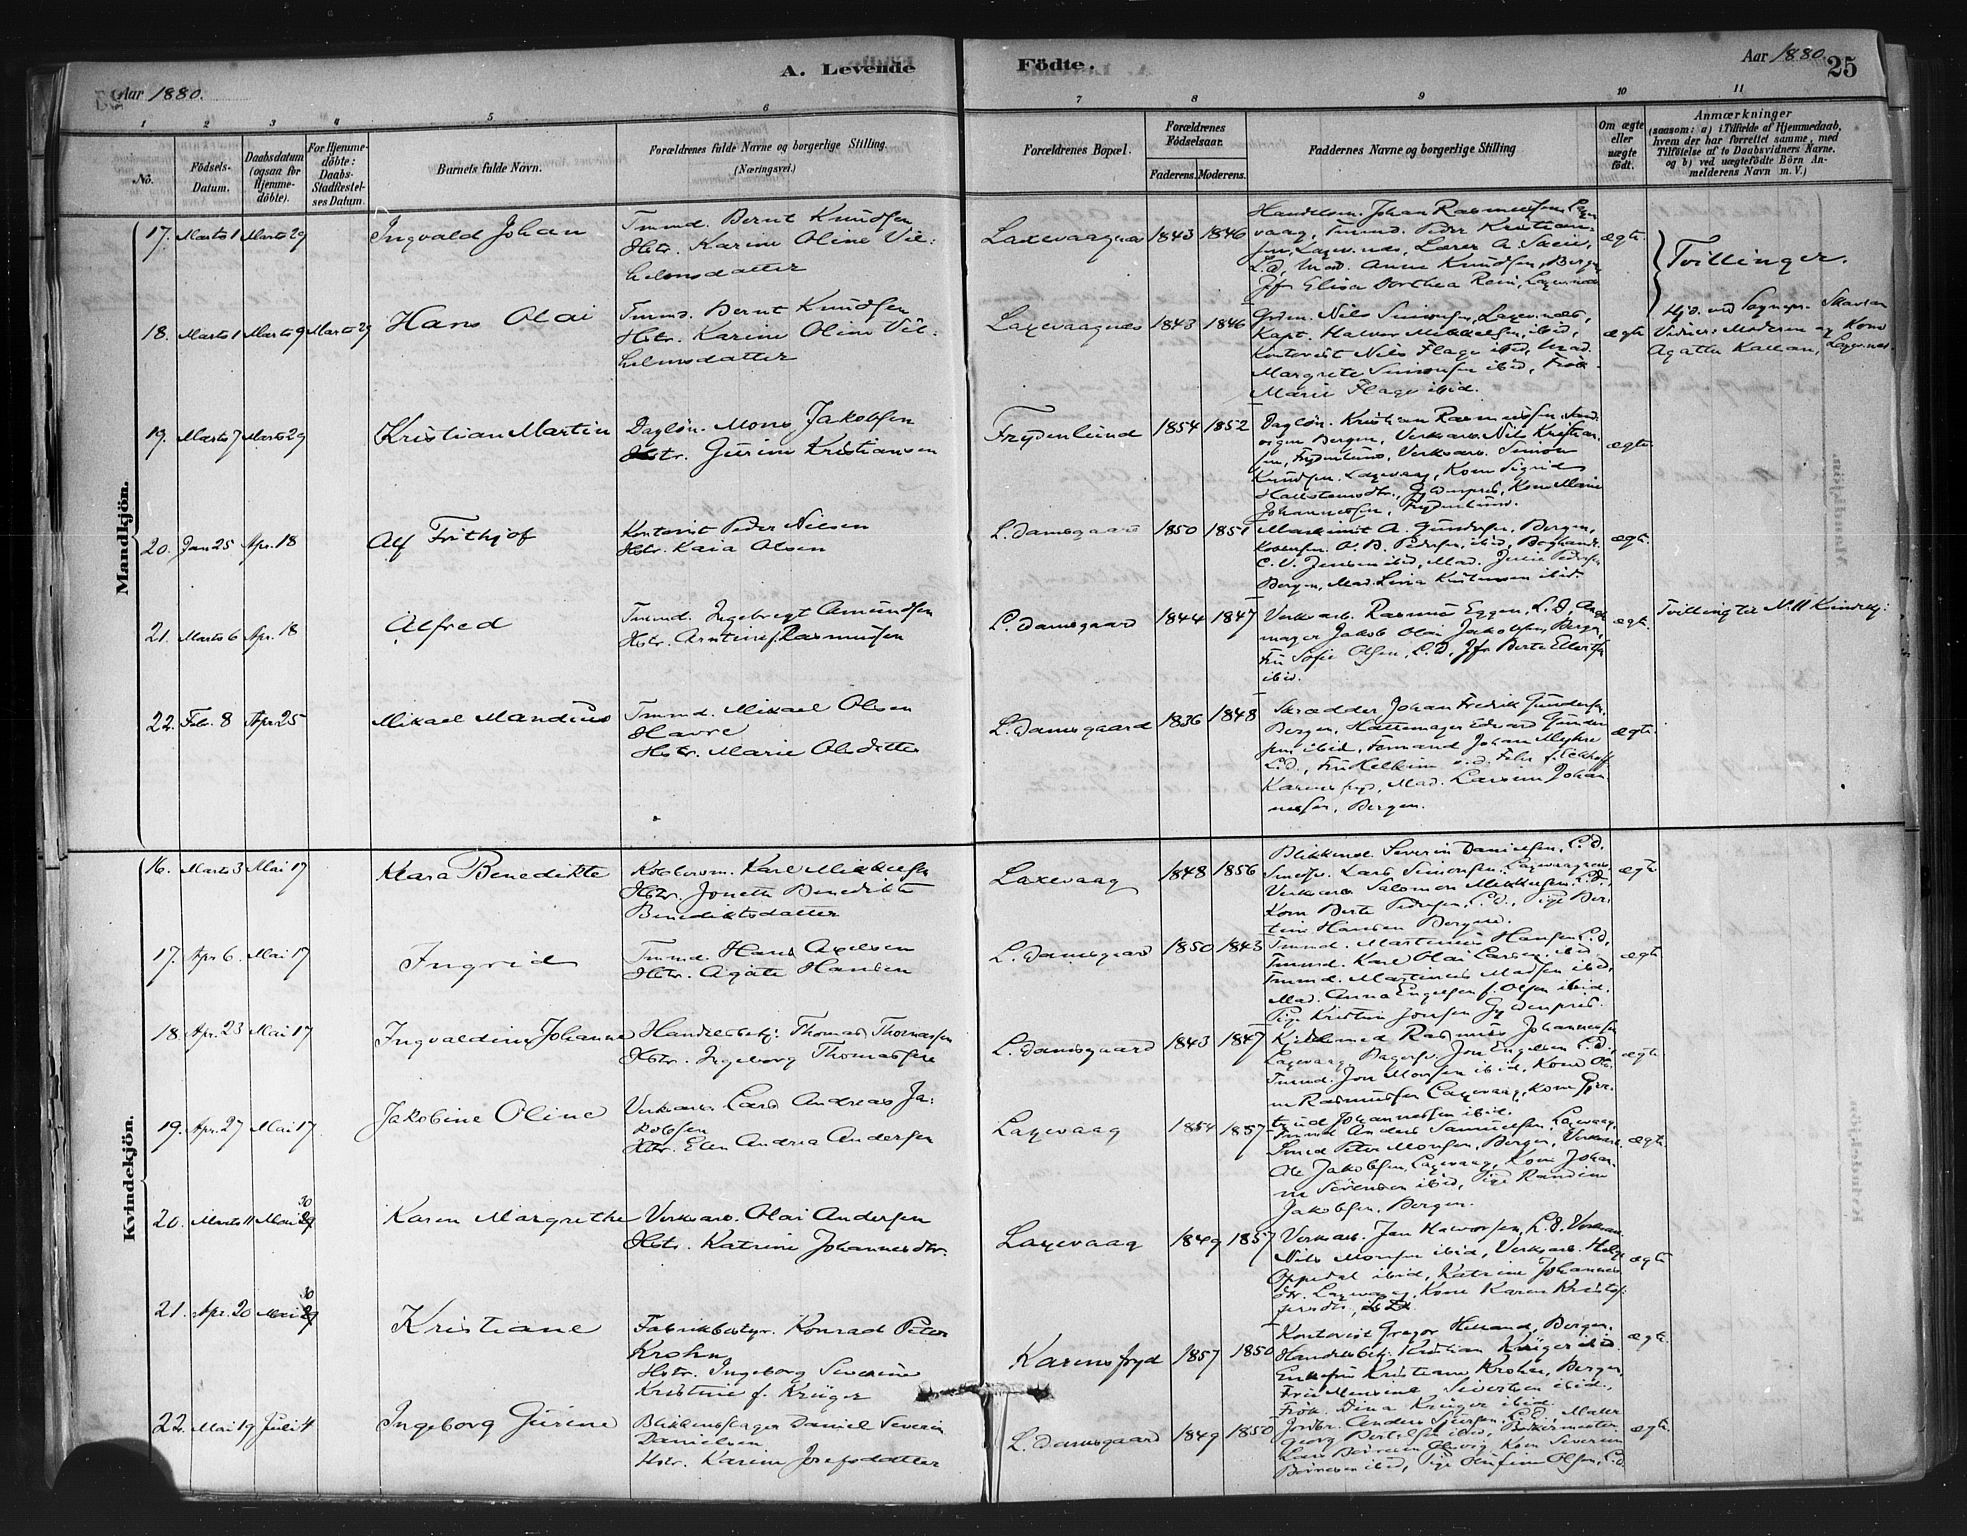 Aar 1880.
A. Levende
Födte.
Aar 1880.
25
1 2 3 4 5 6 7 8 9 10 11
No.
Födsels-
Datum.
Daabsdatum
(ogsaa for
Hjemme-
döbte).
For Hjemme-
döbte:
Daabs-
Stadfæstel-
ses Datum.
Barnets fulde Navn.
Forældrenes fulde Navne og borgerlige Stilling.
(Næringsvei.)
Forældrenes Bopæl.
Forældrenes
Födselsaar.
Faderens. Moderens.
Faddernes Navne og borgerlige Stilling
Om ægte
eller
uægte
födt.
Anmærkninger
(saasom: a) i Tilfælde af Hjemmedaab,
hvem der har forrettet samme, med
Tilföielse af to Daabsvidners Navne,
og b) ved uægtefödte Börn An-
melderens Navn m. V.)
Mandkjön.
17. Marts 1 Marts 29
Ingvald Johan
Tmmd. Bernt Knudsen
Hstr. Karine Oline Vil-
helmsdatter
Laxevaagnes 1843 1846
Handelsm. Johan Rasmussen, Laxe-
vaag, Tmmd. Peder Kristian-
sen, Laxevnes, Lærer A.
L.D., Mad. Anne Knudsen, Bergen
Jfr Elisa Dorthea Rein, Laxevnes
ægte.
Tvillinger.
18. Marts 1 Marts 9 Marts 29
Hans Olai
Tmmd. Bernt Knudsen
Hstr. Karine Oline Vil-
helmsdatter
Laxevaagnes 1843 1846
Nils Simonsen, Laxevnes,
Kapt. Halvor Mikkelsen, ibid,
Kontorist Nils Flage ibid, Mad.
Margrete Simonsen ibid, Frök.
Marie Flage ibid.
ægte
Hjd. ved Sognepr.
Vidner: Moderen og Kone
Agathe Laxevnes.
19. Marts 7 Marts 29
Kristian Martin
Daglön. Mons Jakobsen
Hstr. Gurine Kristiansen
Frydenlund 1854 1852
Daglön. Kristian Rasmussen, Sand-
vigen Bergen, Verksarb. Nils Kristian-
sen, Frydenlund, Verksarb. Simon
Knudsen, Laxevaag, Kone Sigrid
Hallstensdtr., Gyldenpris, Kone Marie
Johannessen, Frydenlund.
ægte
20. Jan 25 Apr. 18
Alf Frithjof
Kontorist Peder Nilsen
Hstr. Kaia Olsen
L. Damsgaard 1850 1851
Maskinist A. Gundersen, Bergen,
O. B. Pedersen, ibid, Boghandl.
C. V. Jensen ibid, Mad. Julie Pedersen
Bergen, Mad. Lina Kristensen ibid.
ægte.
21. Marts 6 Apr. 18
Alfred
Tmmd. Ingebregt Amundsen
Hstr. Rasmussen
L. Damsgaard 1844 1847
Verksarb. Rasmus Eggen, L.D.
mager Jakob Olai Jakobsen, Bergen,
Fru Sofie Olsen, L.D. Jfr Berte
ibid.
ægte.
Tvilling til N. 11 Kvindekj:
22. Feb. 8 Apr 25
Mikael Mandius
Tmmd. Mikael Olsen
Havre
Hstr. Marie Olsdatter
L. Damsgaard 1836 1848
Skrædder Johan Fredrik Gundersen,
Bergen, Hattemager Edvard Gunder-
sen ibid, Formand Johan
L.D.,
Karensfryd, Mad. Larsine Johan-
nesen, Bergen.
ægte.
Kvindekjön.
16. Marts 3 Mai 17
Klara Benedikte
Karl Mikkelsen
Hstr. Benedikte
Benediktsdatter
Laxevaag 1848 1856
Blikkensl. Severin Danielsen, L.D.
Lars Simonsen, Laxevaagnes
Verksarb. Salomon Mikkelsen, L.D.,
Kone Berte Pedersen, L.D., Pige Ber-
tine Hansen Bergen.
ægte
17. Apr 6. Mai 17
Ingrid
Tmmd. Hans Axelsen
Hstr. Agate Hansen
L. Damsgaard 1850 1843
Tmmd. Martinus Hansen L.D.
Tmmd. Karl Olai Larsen ibid
Tmmd. Martinus Madsen ibid,
Mad. Anna Engelsen f. Olsen ibid.
Pige Kristine Jonsen Gyldenpris.
ægte.
18. Apr. 23 Mai 17
Ingvaldine Johanne
Handelsbetj. Thomas Thomassen
Hstr. Ingeborg Thomassen
L. Damsgaard 1843 1847
Rasmus Johannessen
Laxevaag, Bagersv. Jon Engelsen L.D.,
Tmmd. Jon Monsen ibid, Kone
Rasmussen Laxevaag, Kone Gjer-
trud Johannessen ibid.
ægte
19. Apr. 27 Mai 17
Jakobine Oline
Verksarb. Lars Andreas Ja-
kobsen
Hstr. Elen Andrea Andersen
Laxevaag 1854 1857
Tmmd Anders Samuelsen, Laxevaag,
Smed Peter Monsen, Bergen, Verksarb.
Ole Jakobsen, Laxevaag, Kone Johan-
ne Sörensen ibid, Pige Randine
Jakobsen, Bergen.
ægte
20. Marts 11 Mai 30
Karen Margrethe
Verksarb. Olai Andersen
Hstr. Katrine Johannesdtr.
Laxevaag 1849 1857
Verksarb. Jan Halvorsen, L.D. Verksarb.
Nils Monsen ibid, Verksarb. Helge
Oppedal ibid, Katrine Johannes-
dtr. Laxevaag, Kone Karen Kristof-
fersdtr, L.D.
ægte
21. Apr. 20 Mai 30
Kristiane
Fabrikbestyr. Konrad Peter
Krohn
Hstr. Ingeborg Severine
Kristine f. Krüger
Karensfryd 1857 1850
Kontorist Gregor Hilland, Bergen.
Handelsbetj. Kristian Krüger ibid.
Enkefru Kristiane Krohn, Bergen
Fru Sivertsen ibid.,
Frök. Dina Krüger ibid.
ægte.
22. Mai 19 Juli 4
Ingeborg Gurine
Blikkenslager Daniel Severin
Danielsen.
Hstr. Karine Josefsdatter
L. Damsgaard 1849 1850
Jordbr. Anders Sjursen, L.D., Maler
Georg Bertelsen ibid,
Lars Kone Severine
ibid, Pige Olsen, L.D.
ægte.